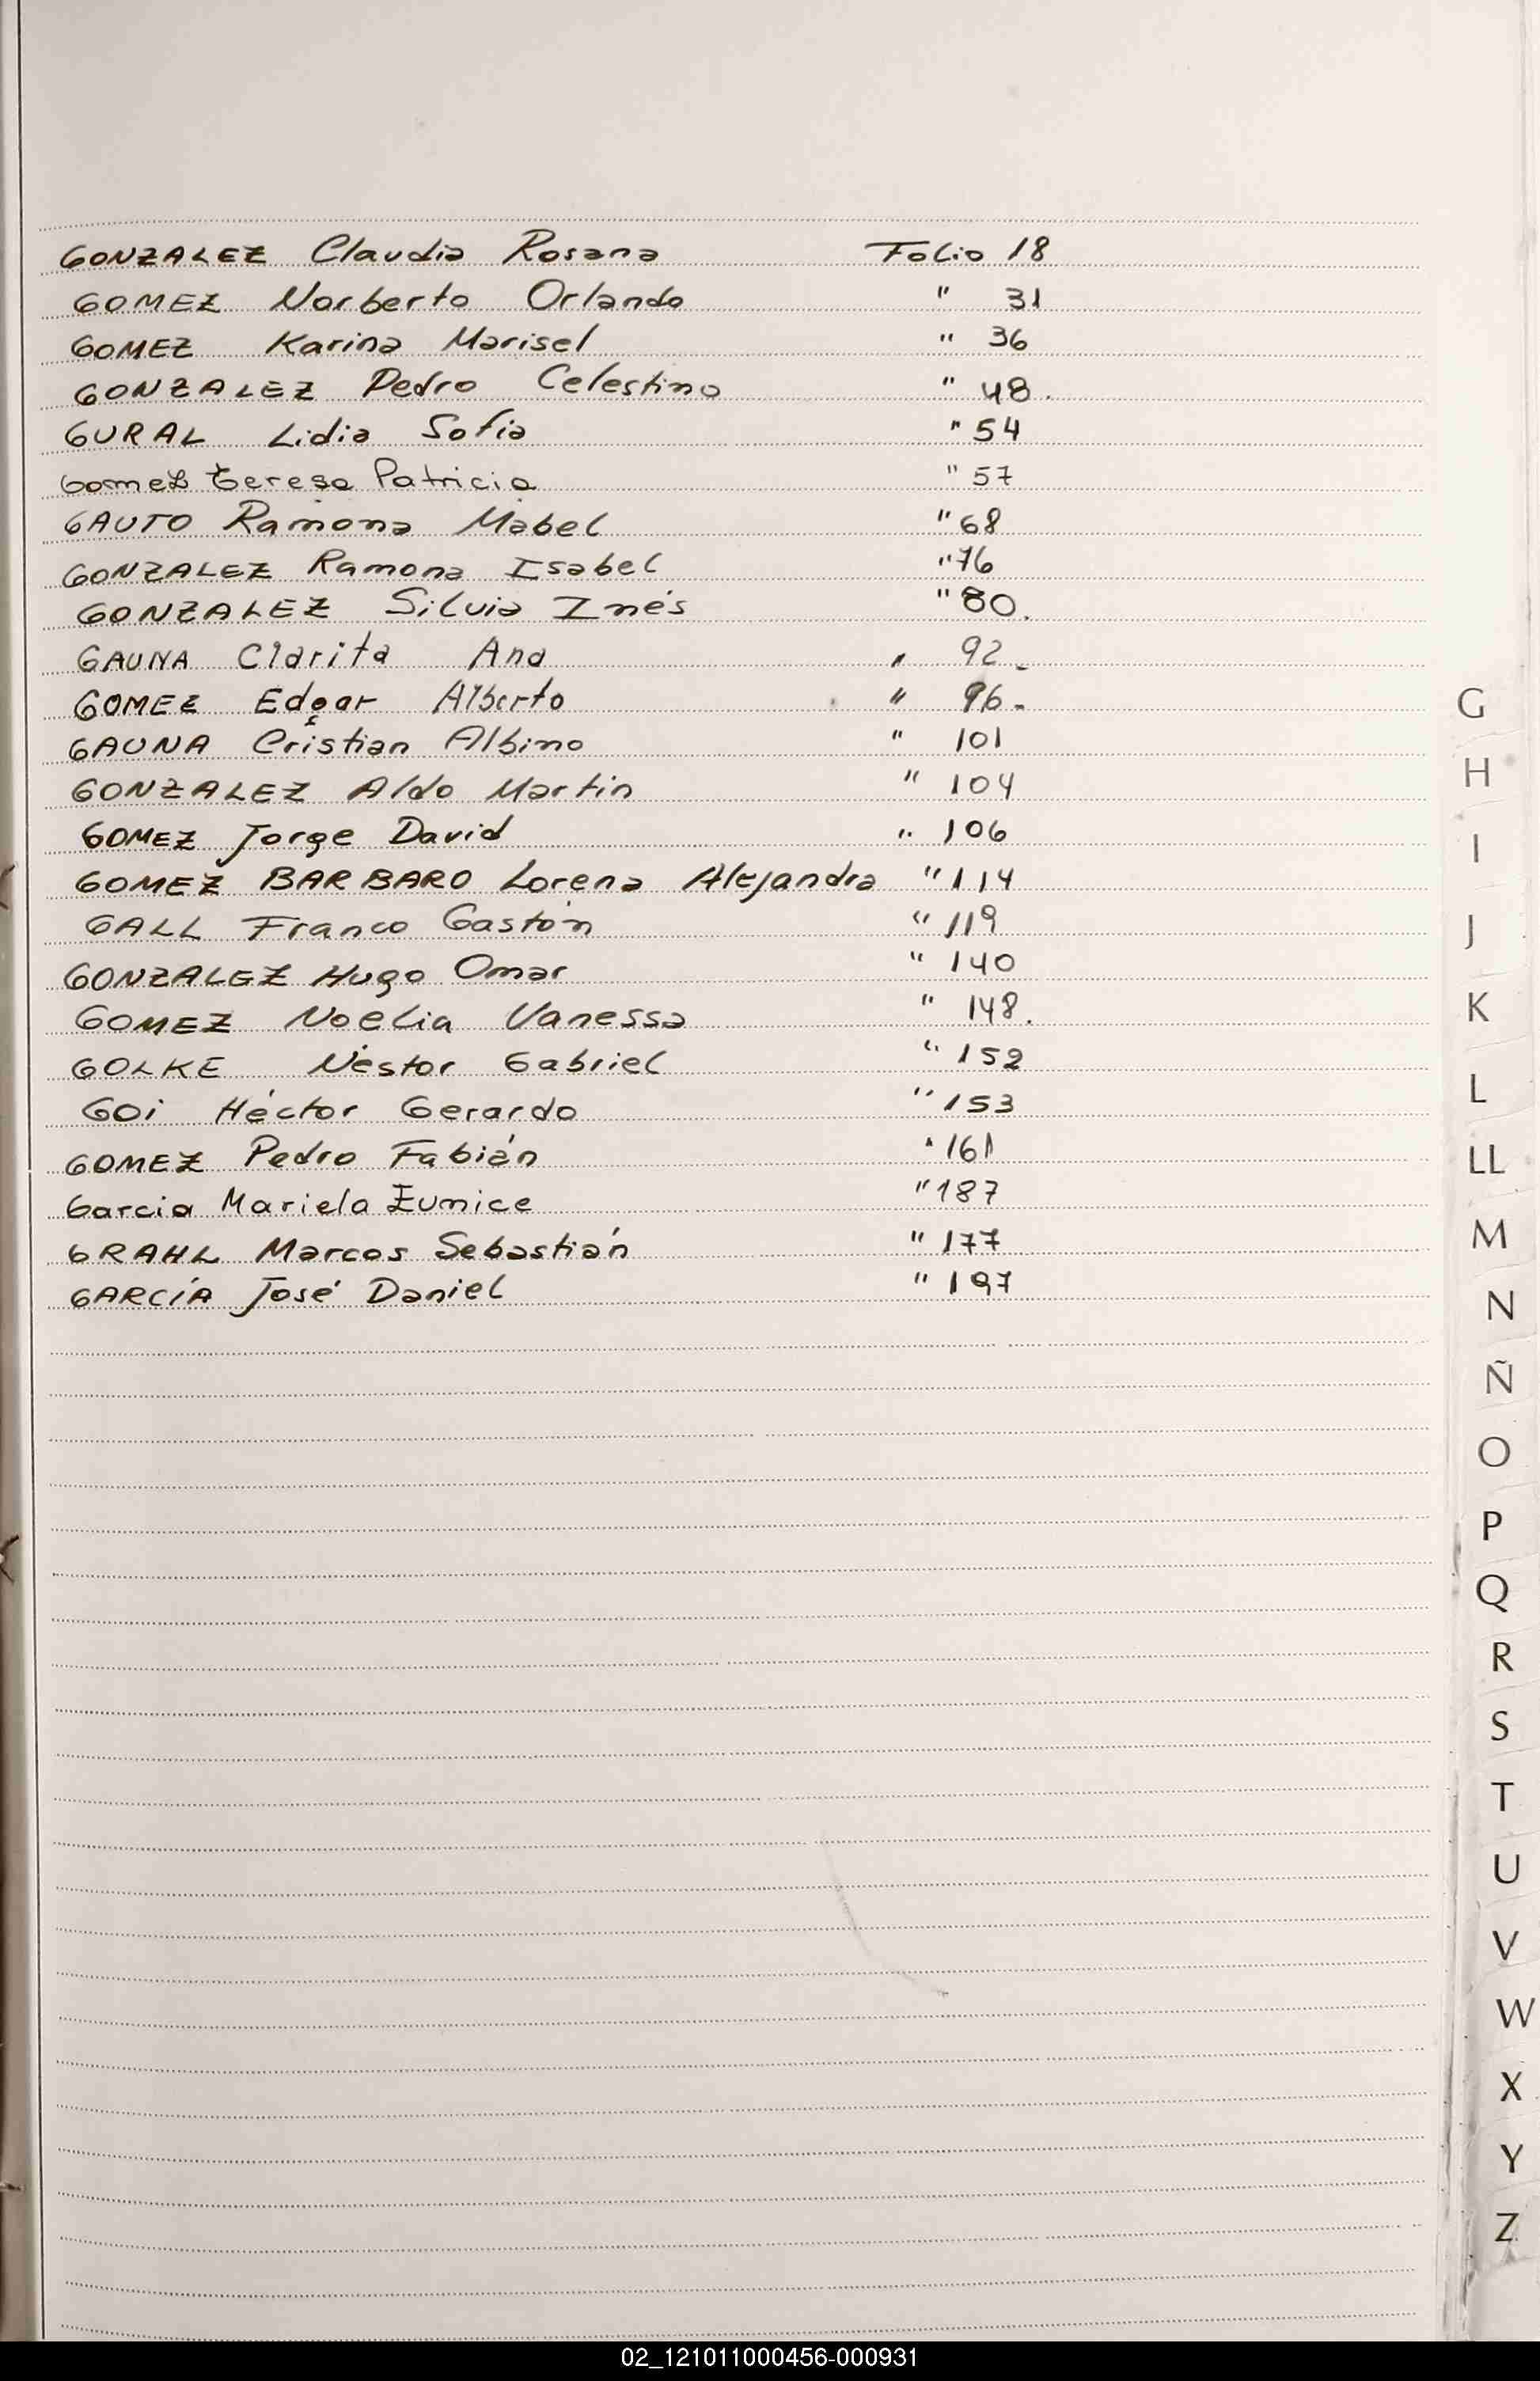 GONZALEZ Claudia Rosana Folio 18
GOMEZ Norberto Orlando " 31
GOMEZ Karina Marisel " 36
GONZALEZ Pedro Celestino " 48.
GURAL Lidia Sofia " 54
Gomez Teresa Patricia " 57
GAUTO Ramona Mabel " 68
GONZALEZ Ramona Isabel " 76
GONZALEZ Silvia Inés " 80.
GAUNA Clarita Ana " 92-
GOMEZ Edgar Alberto " 96-
GAUNA Cristian Albino " 101
GONZALEZ Aldo Martin " 104
GOMEZ Jorge David " 106
GOMEZ BARBARO Lorena Alejandra " 114
GALL Franco Gastón " 119
GONZALEZ Hugo Omar " 140
GOMEZ Noelia Vanessa " 148.
GOLKE Néstor Gabriel " 152
GOi Héctor Gerardo " 153
GOMEZ Pedro Fabián " 161
Garcia Mariela Eunice " 187
GRAHL Marcos Sebastián " 177
GARCÍA José Daniel " 197
G
H
I
J
K
L
LL
M
N
Ñ
O
P
Q
R
S
T
U
V
W
X
Y
Z
02_121011000456-000931